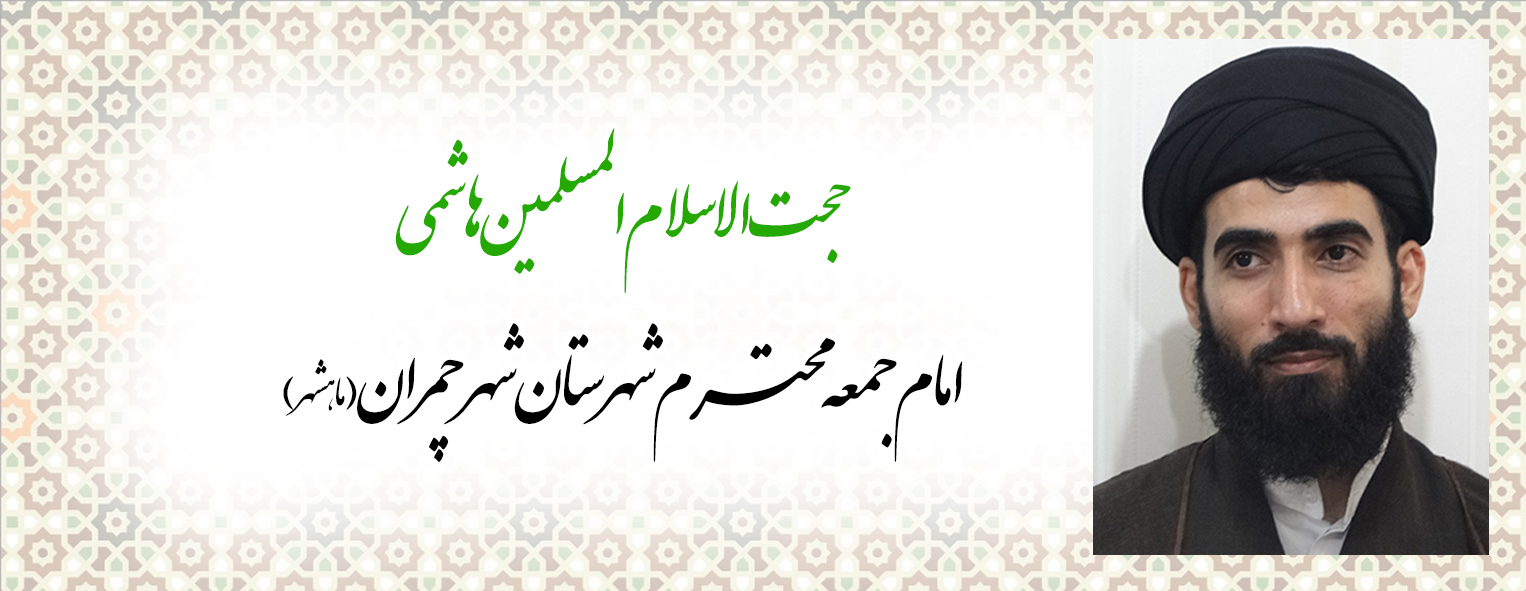 حجت الاسلام المسلمین هاشمی
امام جمعه محترم شهرستان شهر چمران (ماهشهر)